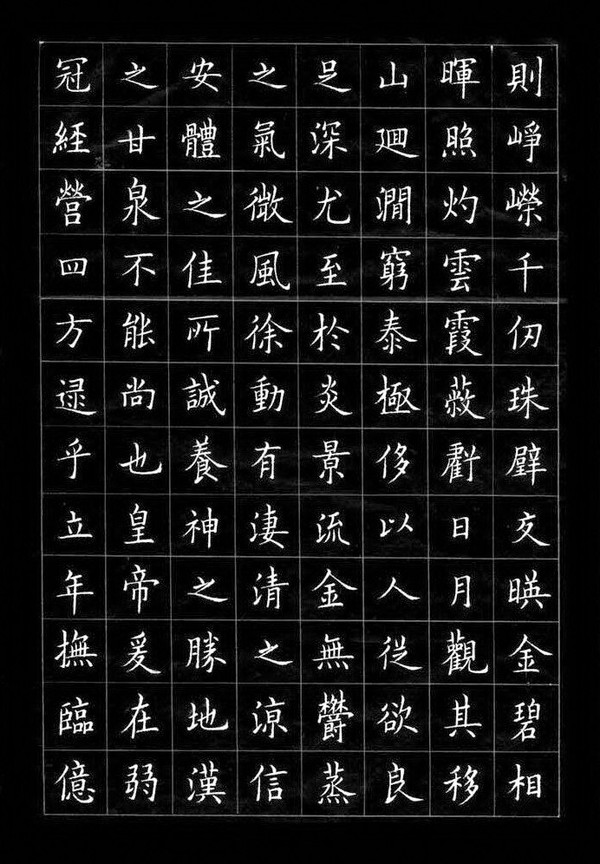 則峥嶸千仞珠壁交暎金碧相
暉照灼雲霞蔽虧日月觀其移
山廻澗窮泰極侈以人從欲良
足深尤至於炎景流金無欝蒸
之氣微風徐動有淒清之涼信
安體之佳所誠養神之勝地漢
之甘泉不能尚也皇帝爰在弱
冠經營四方逯乎立年撫臨億